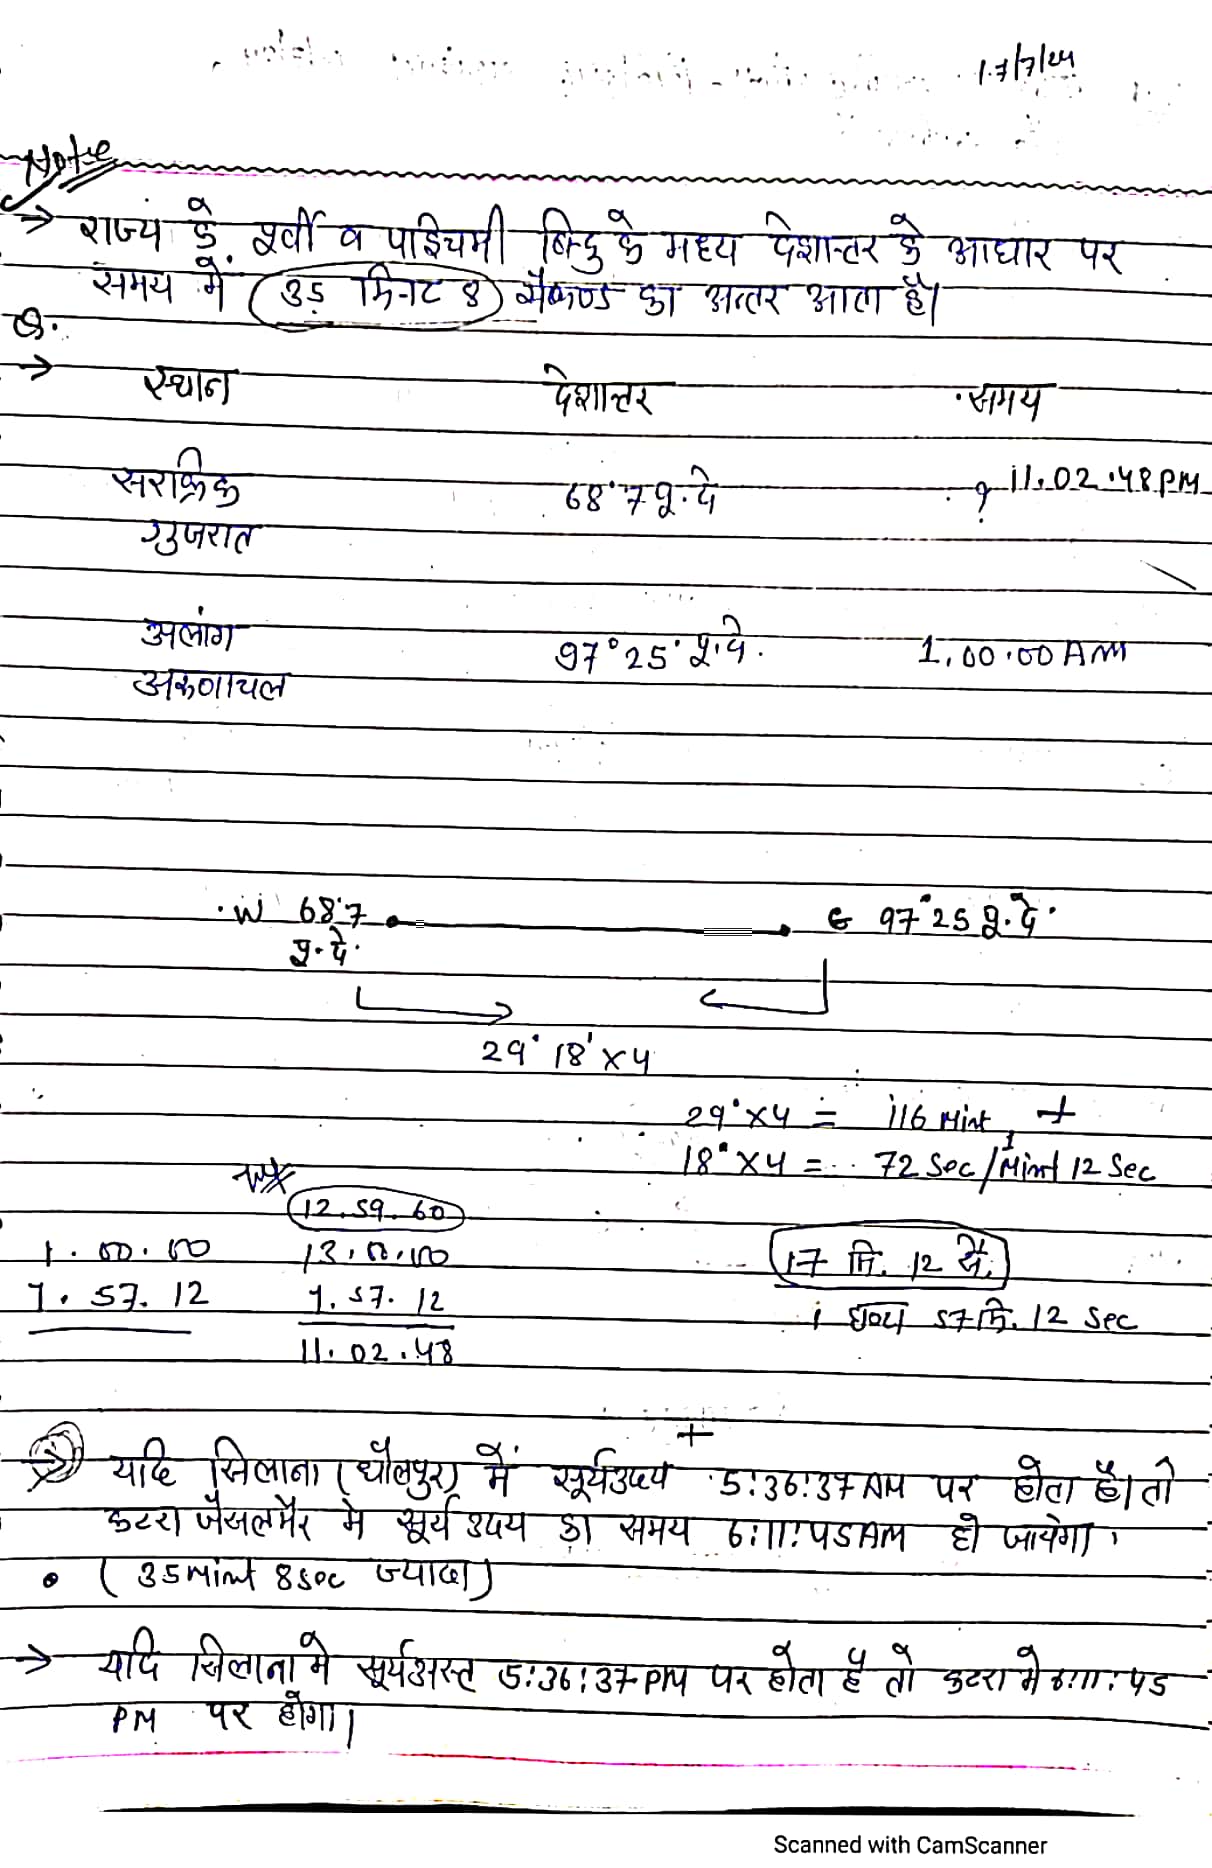 17/7/24
Note
→ राज्य के पूर्वी व पश्चिमी बिन्दु के मध्य देशान्तर के आधार पर
समय में 35 मिनट 8 सैकण्ड का अन्तर आता है।
Q.
→ स्थान देशान्तर समय
सरक्रिक 68°7 पू.दे ? 11.02.48 PM
गुजरात
अलांग 97°25' पू.दे. 1.00.00 AM
अरुणाचल
W 68°7 E 97°25 पू.दे.
पू.दे.
29°18'×4
29°×4 = 116 Mint +
18°×4 = 72 Sec / 1 Mint 12 Sec
12.59.60
1.00.00 13.0.00 17 मि. 12 से.
1.57.12 1.57.12 1 घण्टा 57 मि. 12 Sec
11.02.48
→ यदि सिलाना (धौलपुर) में सूर्यउदय 5:36:37 AM पर होता है। तो
कटरा जैसलमैर मे सूर्य उदय का समय 6:11:45 AM हो जायेगा।
• (35 Mint 8 sec ज्यादा)
→ यदि सिलाना मे सूर्यअस्त 5:36:37 PM पर होता है तो कटरा मे 6:11:45
PM पर होगा।
Scanned with CamScanner